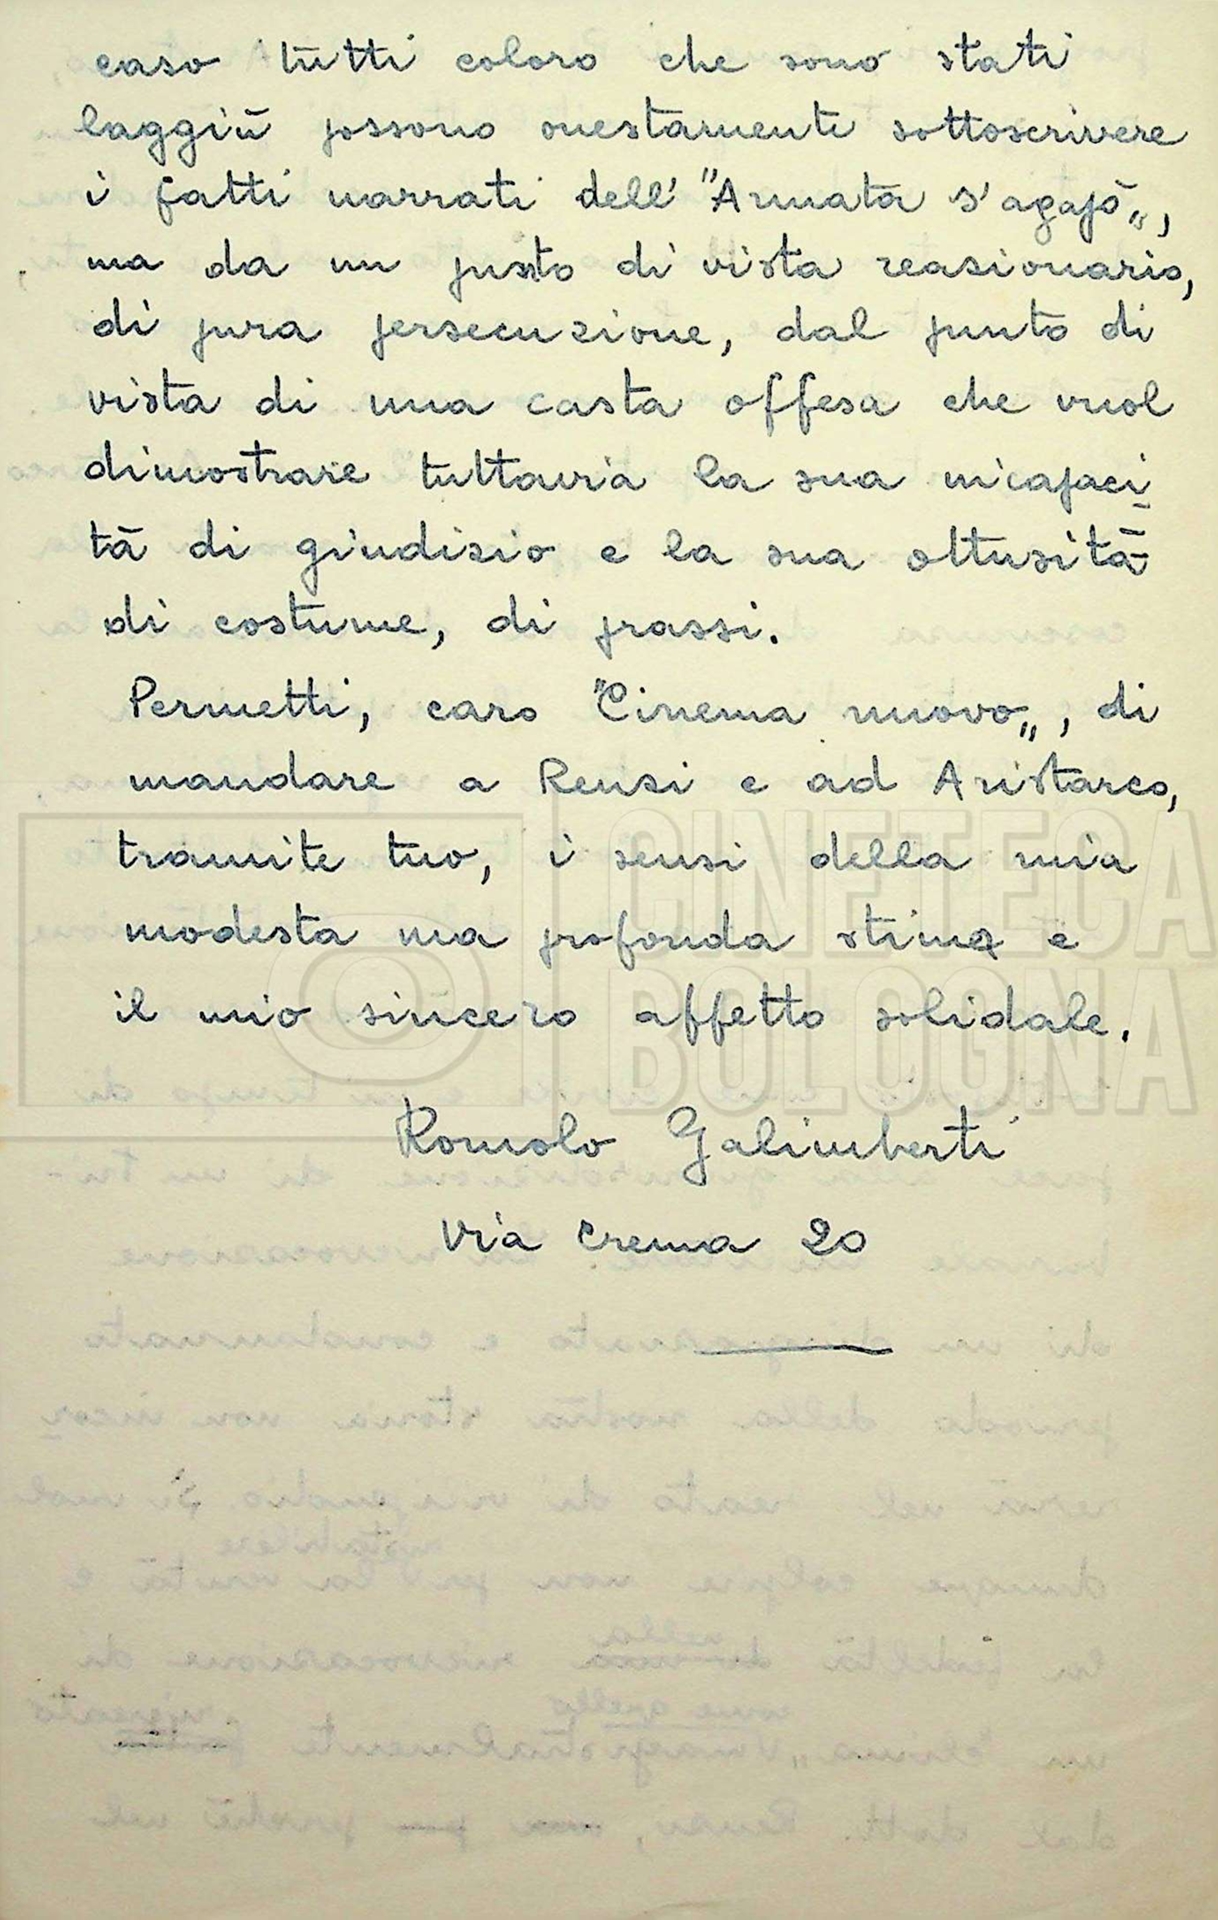 caso tutti coloro che sono stati
laggiù possono onestamente sottoscrivere
i fatti narrati dell' "Armata s'agapò„,
ma da un punto di vista reazionario,
di pura persecuzione, dal punto di
vista di una casta offesa che vuol
dimostrare tuttavia la sua incapaci
tà di giudizio e la sua ottusità
di costume, di prassi.
Permetti, caro "Cinema nuovo„, di
mandare a Renzi e ad Aristarco,
tramite tuo, i sensi della mia
modesta ma profonda stima e
il mio sincero affetto solidale.
Romolo Galimberti
Via Crema 20
CINETECA
BOLOGNA